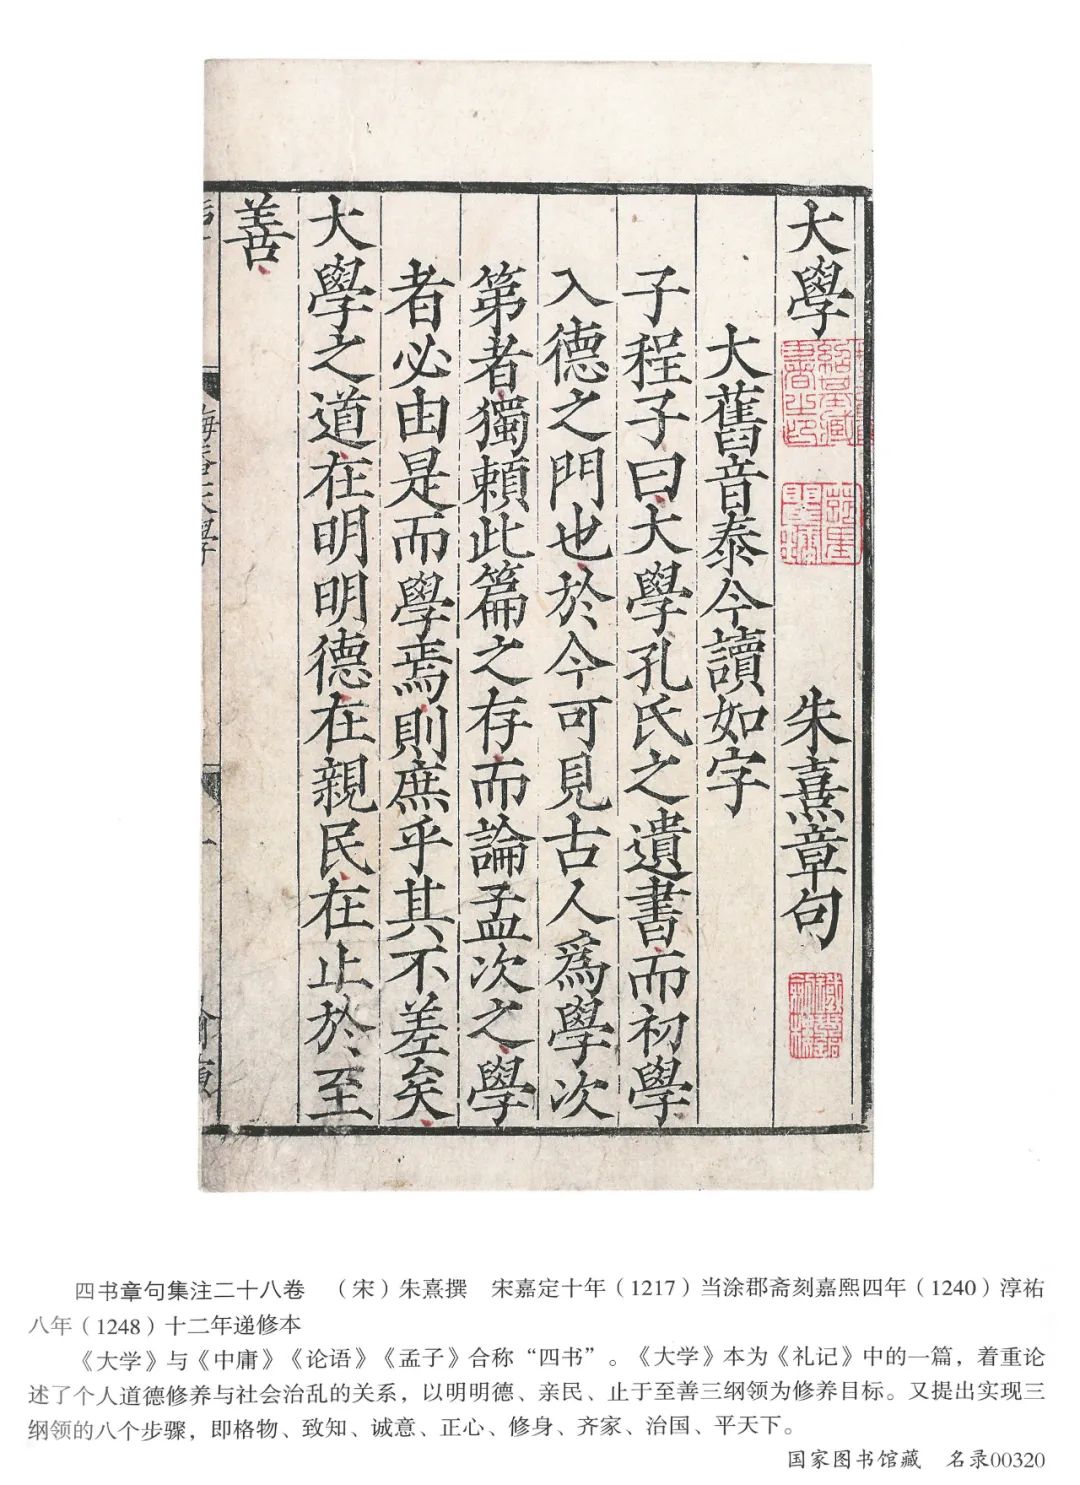 大學 朱熹章句
大舊音泰今讀如字
子程子曰大學孔氏之遺書而初學
入德之門也於今可見古人爲學次
第者獨賴此篇之存而論孟次之學
者必由是而學焉則庶乎其不差矣
大學之道在明明德在親民在止於至
善
四书章句集注二十八卷 （宋）朱熹撰 宋嘉定十年（1217）当涂郡斋刻嘉熙四年（1240）淳祐
八年（1248）十二年递修本
《大学》与《中庸》《论语》《孟子》合称“四书”。《大学》本为《礼记》中的一篇，着重论
述了个人道德修养与社会治乱的关系，以明明德、亲民、止于至善三纲领为修养目标。又提出实现三
纲领的八个步骤，即格物、致知、诚意、正心、修身、齐家、治国、平天下。
国家图书馆藏 名录00320